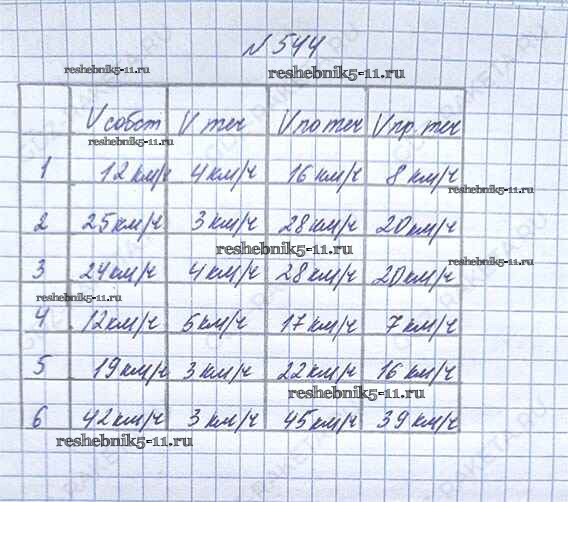 № 544
reshebnik5-11.ru reshebnik5-11.ru
V собст V теч V по теч V пр. теч
reshebnik5-11.ru
1 12 км/ч 4 км/ч 16 км/ч 8 км/ч
reshebnik5-11.ru
2 25 км/ч 3 км/ч 28 км/ч 20 км/ч
reshebnik5-11.ru
reshebnik5-11.ru
3 24 км/ч 4 км/ч 28 км/ч 20 км/ч
reshebnik5-11.ru
4 12 км/ч 6 км/ч 17 км/ч 7 км/ч
5 19 км/ч 3 км/ч 22 км/ч 16 км/ч
reshebnik5-11.ru
6 42 км/ч 3 км/ч 45 км/ч 39 км/ч
reshebnik5-11.ru